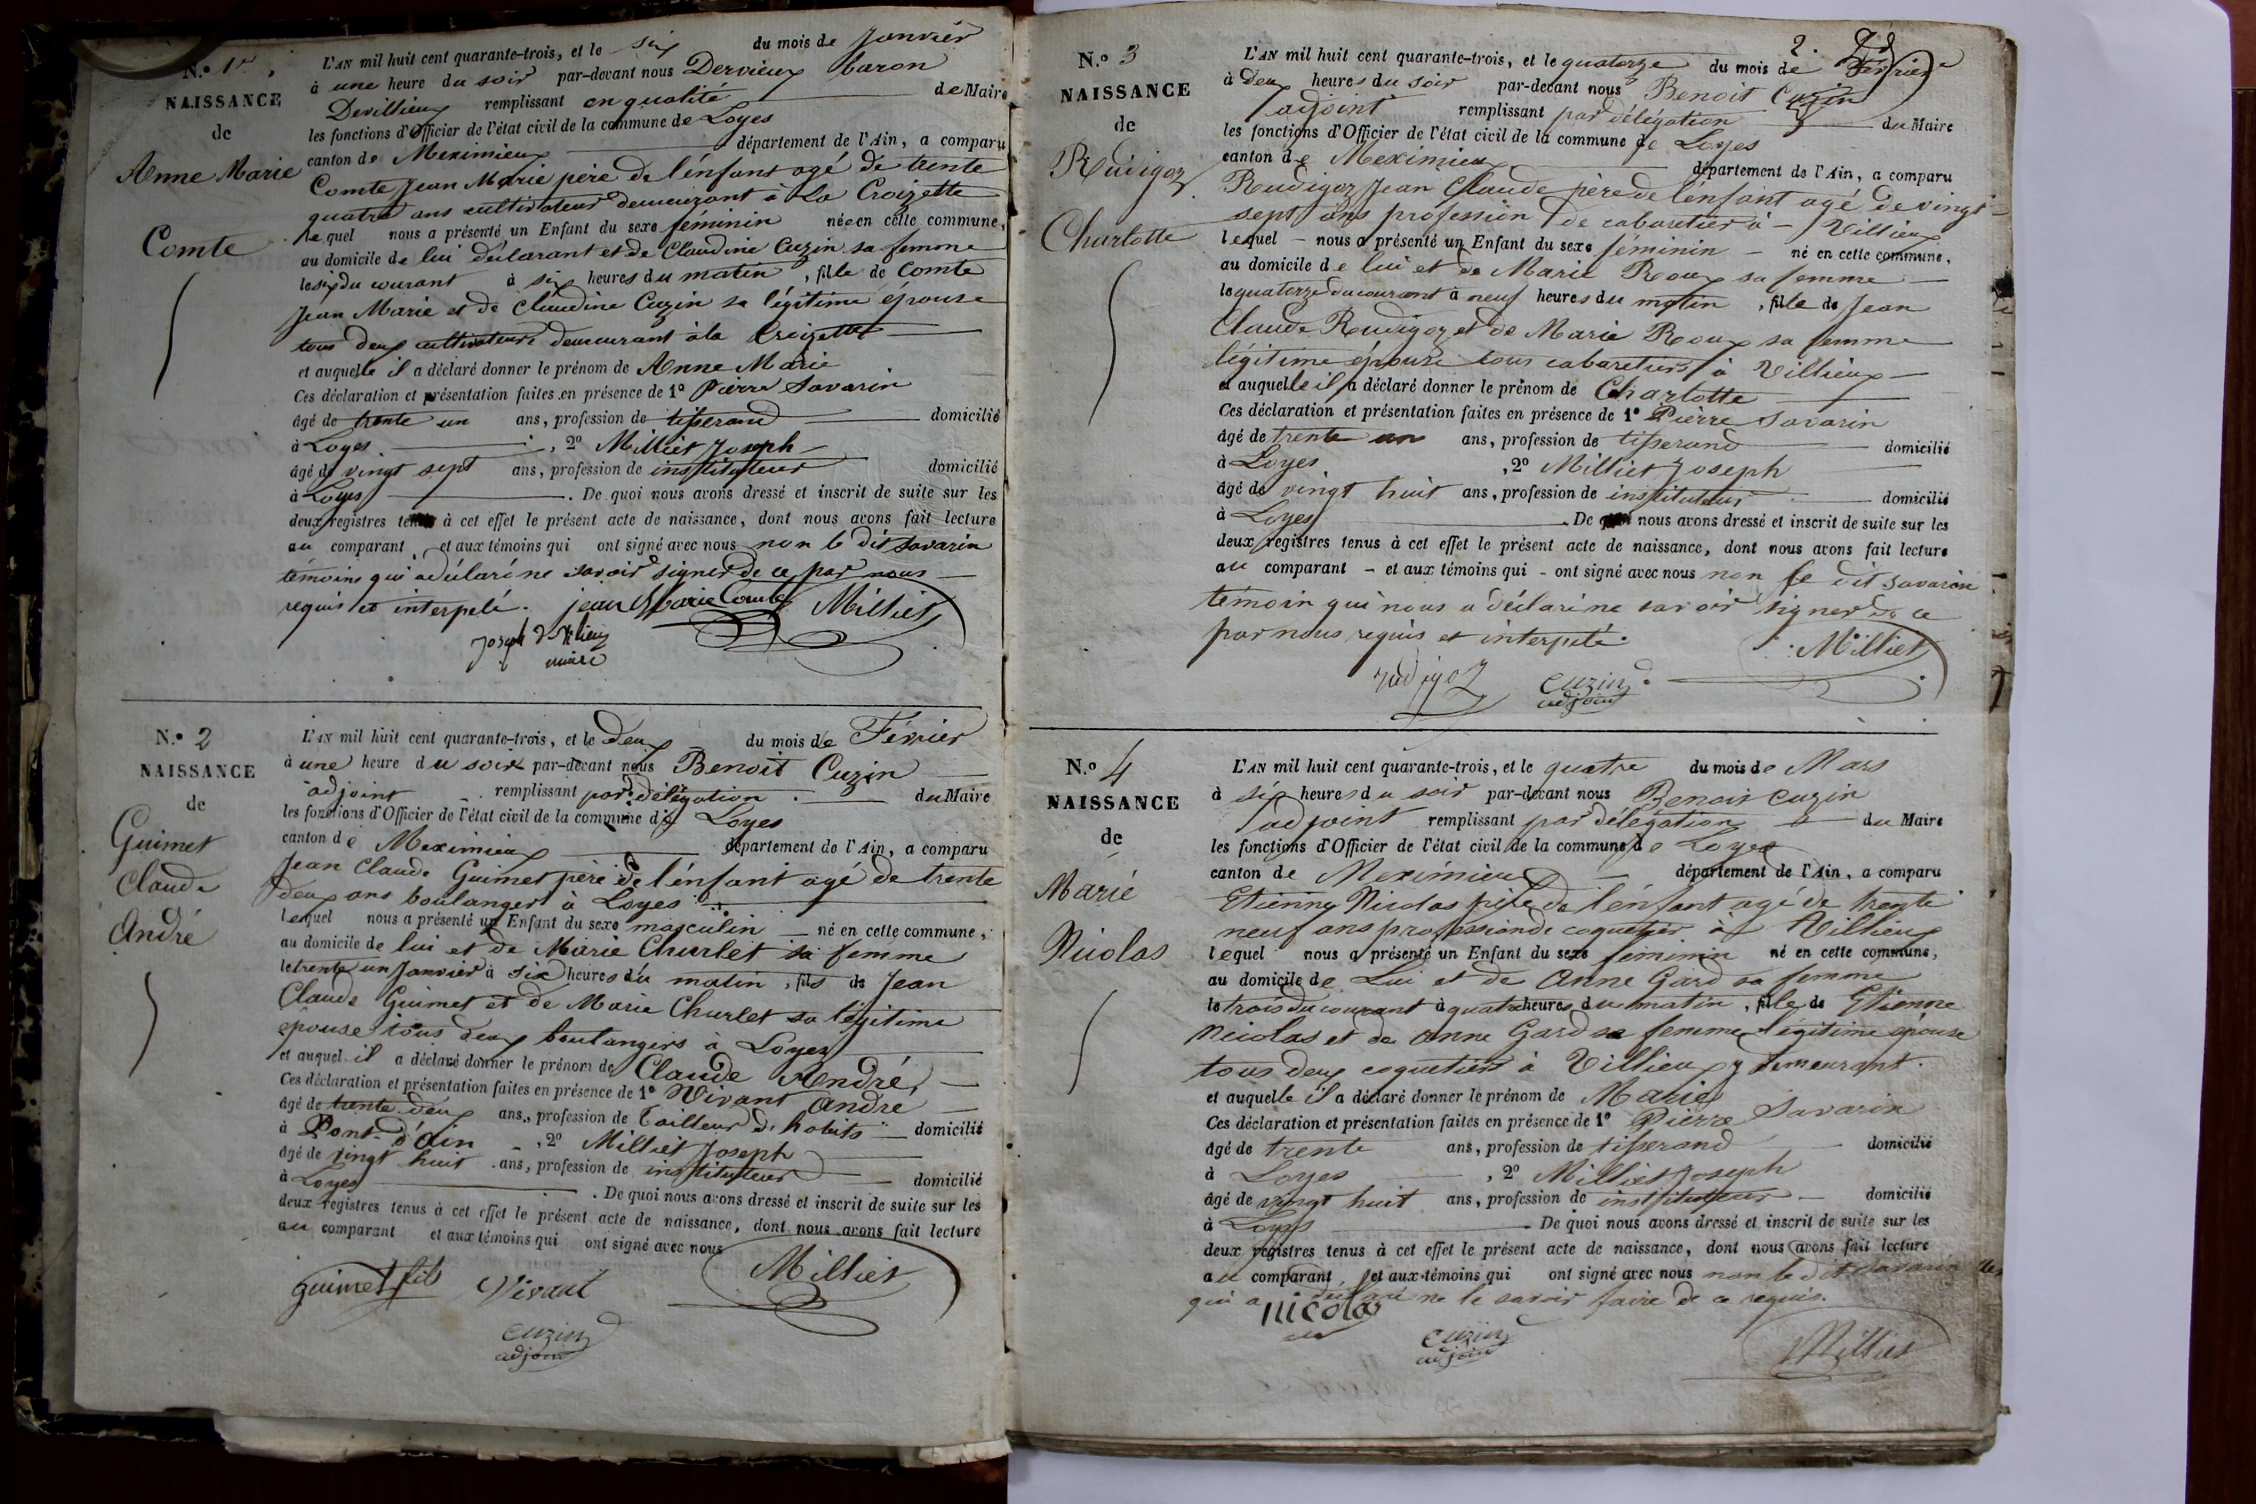 N.° 1er
NAISSANCE
de
Anne Marie
Comte
L'AN mil huit cent quarante-trois, et le six du mois de Janvier
à une heure du soir par-devant nous Dervieux baron
Devillieux remplissant en qualité de Maire
les fonctions d'Officier de l'état civil de la commune de Loyes
canton de Meximieux département de l'Ain, a comparu
Comte Jean Marie père de l'énfant agé de trente
quatre ans cultivateur demeurant à La Croizette
Lequel nous a présenté un Enfant du sexe féminin née en cette commune,
au domicile de lui déclarant et de Claudine Cuzin sa femme
le six du courant à six heures du matin, fille de Comte
Jean Marie et de Claudine Cuzin sa légitime épouse
tous deux cultivateurs demeurant à la Croizette
et auquelle il a déclaré donner le prénom de Anne Marie
Ces déclaration et présentation faites en présence de 1° Pierre Savarin
âgé de trente un ans, profession de tisserand domicilié
à Loyes, 2° Milliet Joseph
âgé de vingt sept ans, profession de instituteur domicilié
à Loyes. De quoi nous avons dressé et inscrit de suite sur les
deux registres tenus à cet effet le présent acte de naissance, dont nous avons fait lecture
au comparant et aux témoins qui ont signé avec nous non le dit Savarin
témoins qui a déclaré ne savoir signer de ce par nous
requis et interpelé. jean Marie Comte Milliet
Joseph
maire
N.° 2
NAISSANCE
de
Guimet
Claude
André
L'AN mil huit cent quarante-trois, et le deux du mois de Février
à une heure du soir par-devant nous Benoit Cuzin
adjoint remplissant par délégation du Maire
les fonctions d'Officier de l'état civil de la commune de Loyes
canton de Meximieux département de l'Ain, a comparu
Jean Claude Guimet père de l'énfant agé de trente
deux ans boulanger à Loyes
Lequel nous a présenté un Enfant du sexe masculin né en cette commune,
au domicile de lui et de Marie Churlet sa femme
le trente un Janvier à six heures du matin, fils de Jean
Claude Guimet et de Marie Churlet sa légitime
épouse tous deux boulangers à Loyes
et auquel il a déclaré donner le prénom de Claude André
Ces déclaration et présentation faites en présence de 1° Vivant André
âgé de trente deux ans, profession de Tailleur d'habits domicilié
à Pont-d'Ain, 2° Milliet Joseph
âgé de vingt huit ans, profession de instituteur domicilié
à Loyes. De quoi nous avons dressé et inscrit de suite sur les
deux registres tenus à cet effet le présent acte de naissance, dont nous avons fait lecture
au comparant et aux témoins qui ont signé avec nous
guimet fils Vivant Milliet
Cuzin
adjoint
2.
N.° 3
NAISSANCE
de
Rudigoz
Charlotte
L'AN mil huit cent quarante-trois, et le quatorze du mois de Février
à deux heures du soir par-devant nous Benoit Cuzin
adjoint remplissant par délégation du Maire
les fonctions d'Officier de l'état civil de la commune de Loyes
canton de Meximieux département de l'Ain, a comparu
Rudigoz Jean Claude père de l'énfant agé de vingt-
sept ans profession de cabaretier à Villieux
lequel nous a présenté un Enfant du sexe féminin né en cette commune,
au domicile de lui et de Marie Roux sa femme
le quatorze du courant à neuf heures du matin, fille de Jean
Claude Rudigoz et de Marie Roux sa femme
légitime épouse tous cabaretiers à Villieux
et auquelle il a déclaré donner le prénom de Charlotte
Ces déclaration et présentation faites en présence de 1° Pierre Savarin
âgé de trente un ans, profession de tisserand domicilié
à Loyes, 2° Milliet Joseph
âgé de vingt huit ans, profession de instituteur domicilié
à Loyes. De quoi nous avons dressé et inscrit de suite sur les
deux registres tenus à cet effet le présent acte de naissance, dont nous avons fait lecture
au comparant et aux témoins qui ont signé avec nous non le dit Savarin
témoin qui nous a déclaré ne savoir signer de ce
par nous requis et interpelé. Milliet
rudigoz Cuzin
adjoint
N.° 4
NAISSANCE
de
Marie
Nicolas
L'AN mil huit cent quarante-trois, et le quatre du mois de Mars
à six heures du soir par-devant nous Benoit Cuzin
adjoint remplissant par délégation du Maire
les fonctions d'Officier de l'état civil de la commune de Loyes
canton de Meximieux département de l'Ain, a comparu
Etienne Nicolas père de l'énfant agé de trente
neuf ans profession de coquetier à Villieux
lequel nous a présenté un Enfant du sexe féminin né en cette commune,
au domicile de Lui et de Anne Gard sa femme
le trois du courant à quatre heures du matin, fille de Etienne
Nicolas et de Anne Gard sa femme légitime épouse
tous deux coquetiers à Villieux y demeurant.
et auquelle il a déclaré donner le prénom de Marie
Ces déclaration et présentation faites en présence de 1° Pierre Savarin
âgé de trente ans, profession de tisserand domicilié
à Loyes, 2° Milliet Joseph
âgé de vingt huit ans, profession de instituteur domicilié
à Loyes. De quoi nous avons dressé et inscrit de suite sur les
deux registres tenus à cet effet le présent acte de naissance, dont nous avons fait lecture
au comparant et aux témoins qui ont signé avec nous non le dit Savarin
qui a déclaré ne le savoir faire de ce requis.
nicolas Cuzin Milliet
adjoint